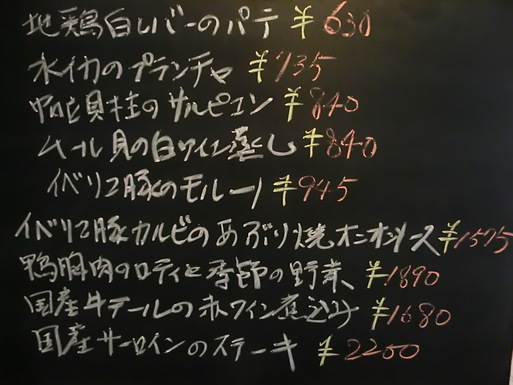 地鶏白レバーのパテ ¥630
水イカのプランチャ ¥735
貝柱のサルピコン ¥840
ムール貝の白ワイン蒸し ¥840
イベリコ豚のモルーノ ¥945
イベリコ豚カルビのあぶり焼オニオンソース ¥1575
鴨胸肉のロティと季節の野菜 ¥1890
国産牛テールの赤ワイン煮込み ¥1680
国産サーロインのステーキ ¥2250